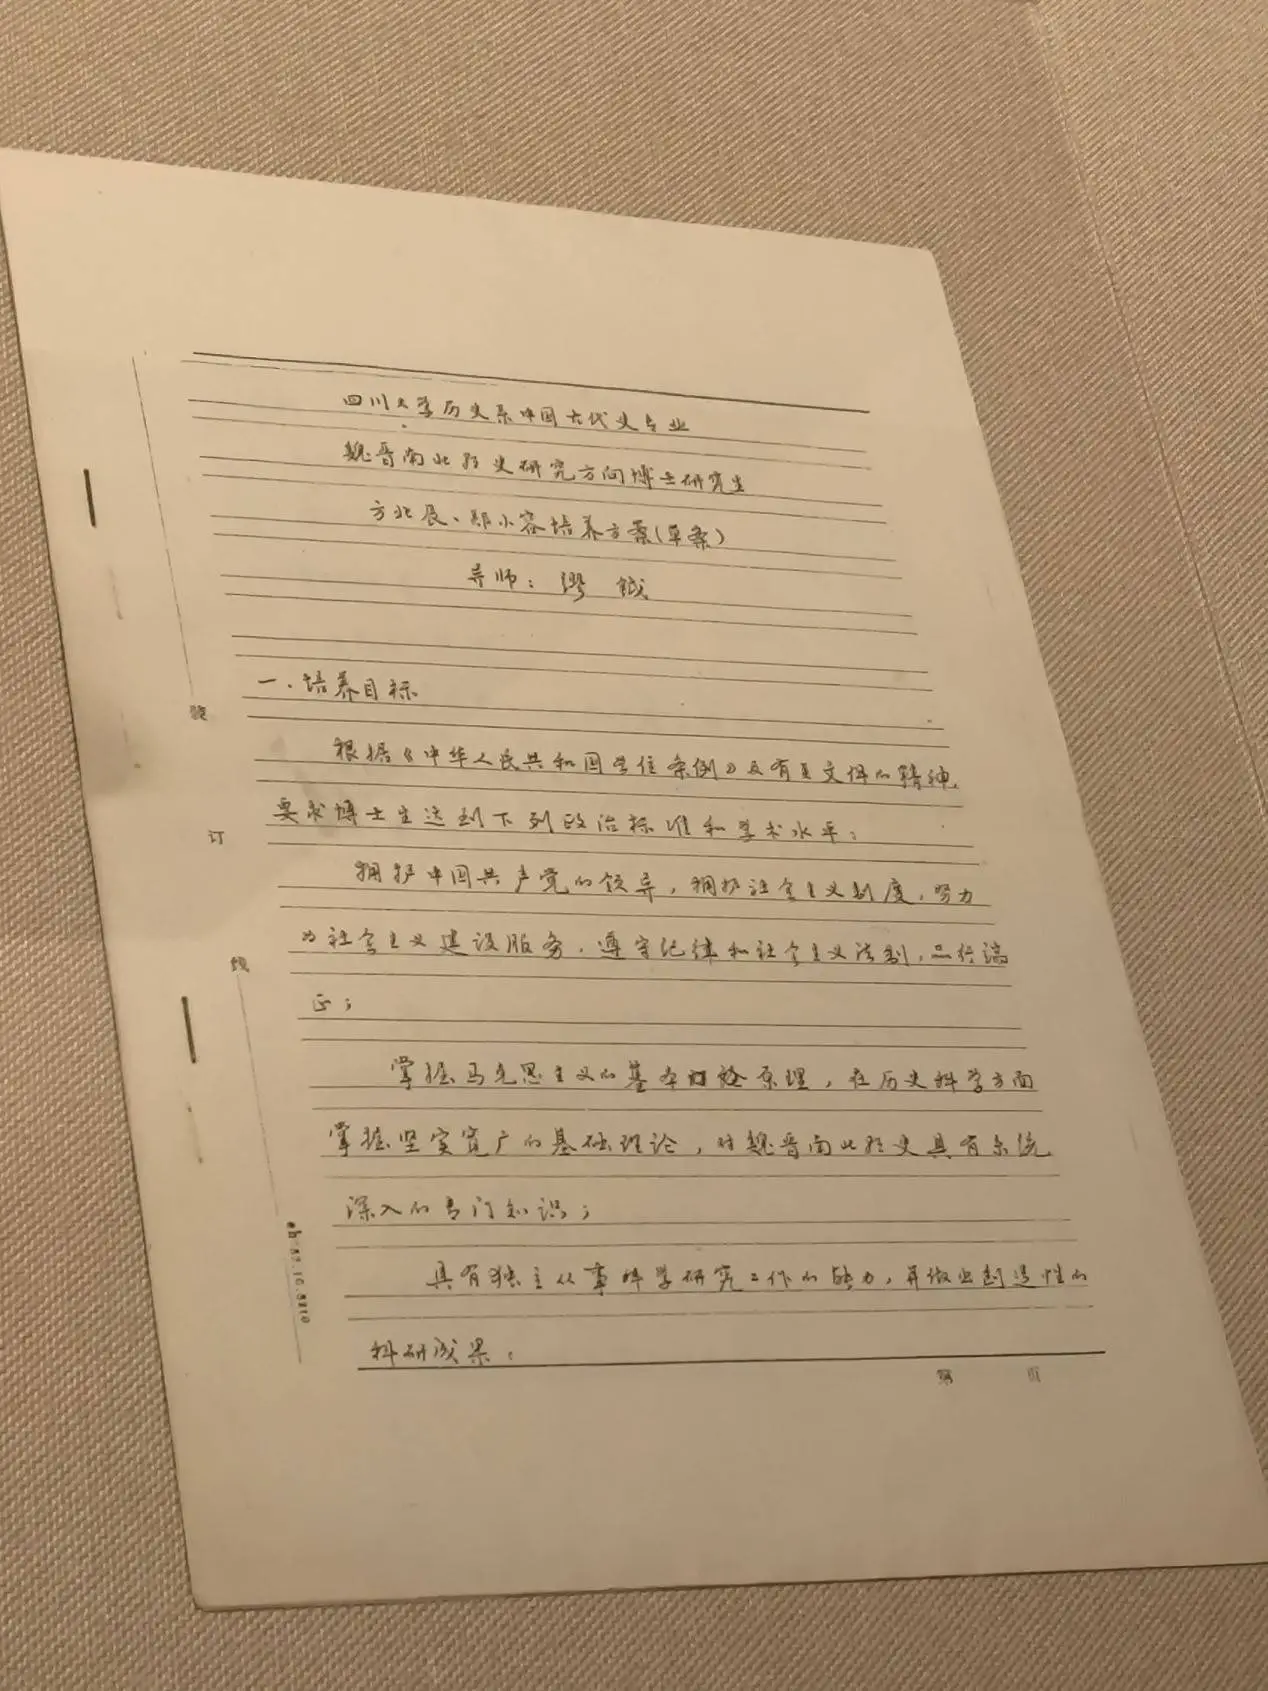 四川大学历史系中国古代史专业
魏晋南北朝史研究方向博士研究生
方北辰、郑小容培养方案(草案)
导师：缪 钺
一、培养目标
根据《中华人民共和国学位条例》及有关文件的精神，
要求博士生达到下列政治标准和学术水平：
拥护中国共产党的领导，拥护社会主义制度，努力
为社会主义建设服务，遵守纪律和社会主义法制，品行端
正；
掌握马克思主义的基本原理，在历史科学方面
掌握坚实宽广的基础理论，对魏晋南北朝史具有系统
深入的专门知识；
具有独立从事科学研究工作的能力，并做出创造性的
科研成果；
装
订
线
第 页